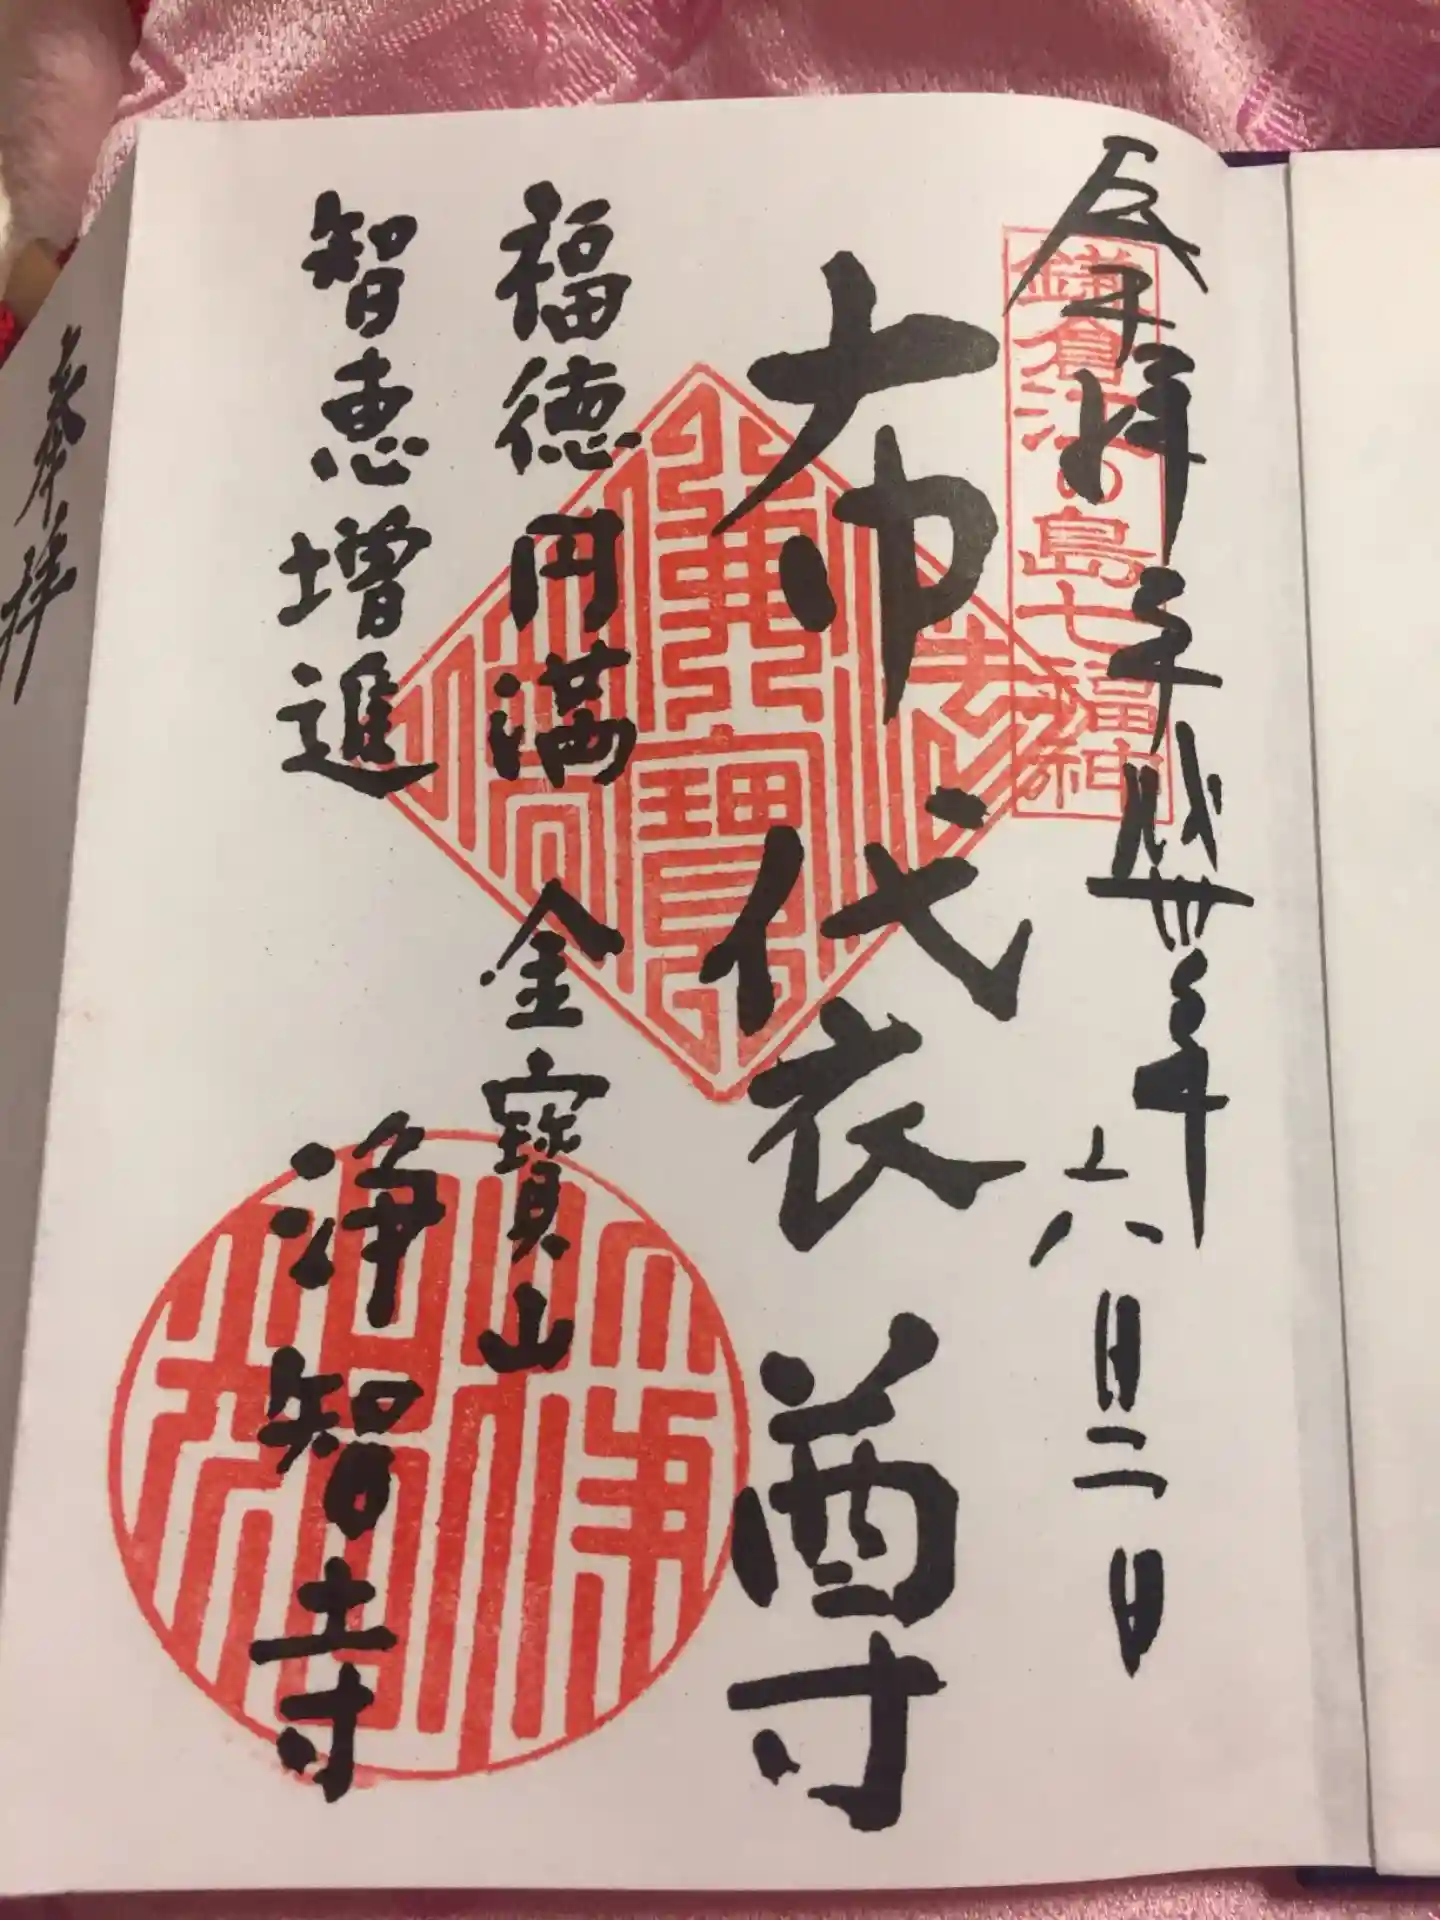 奉拝 平成卅年 六月二日
鎌倉江の島七福神
布袋尊
福徳円満 金寳山
智恵増進 浄智寺
奉拝